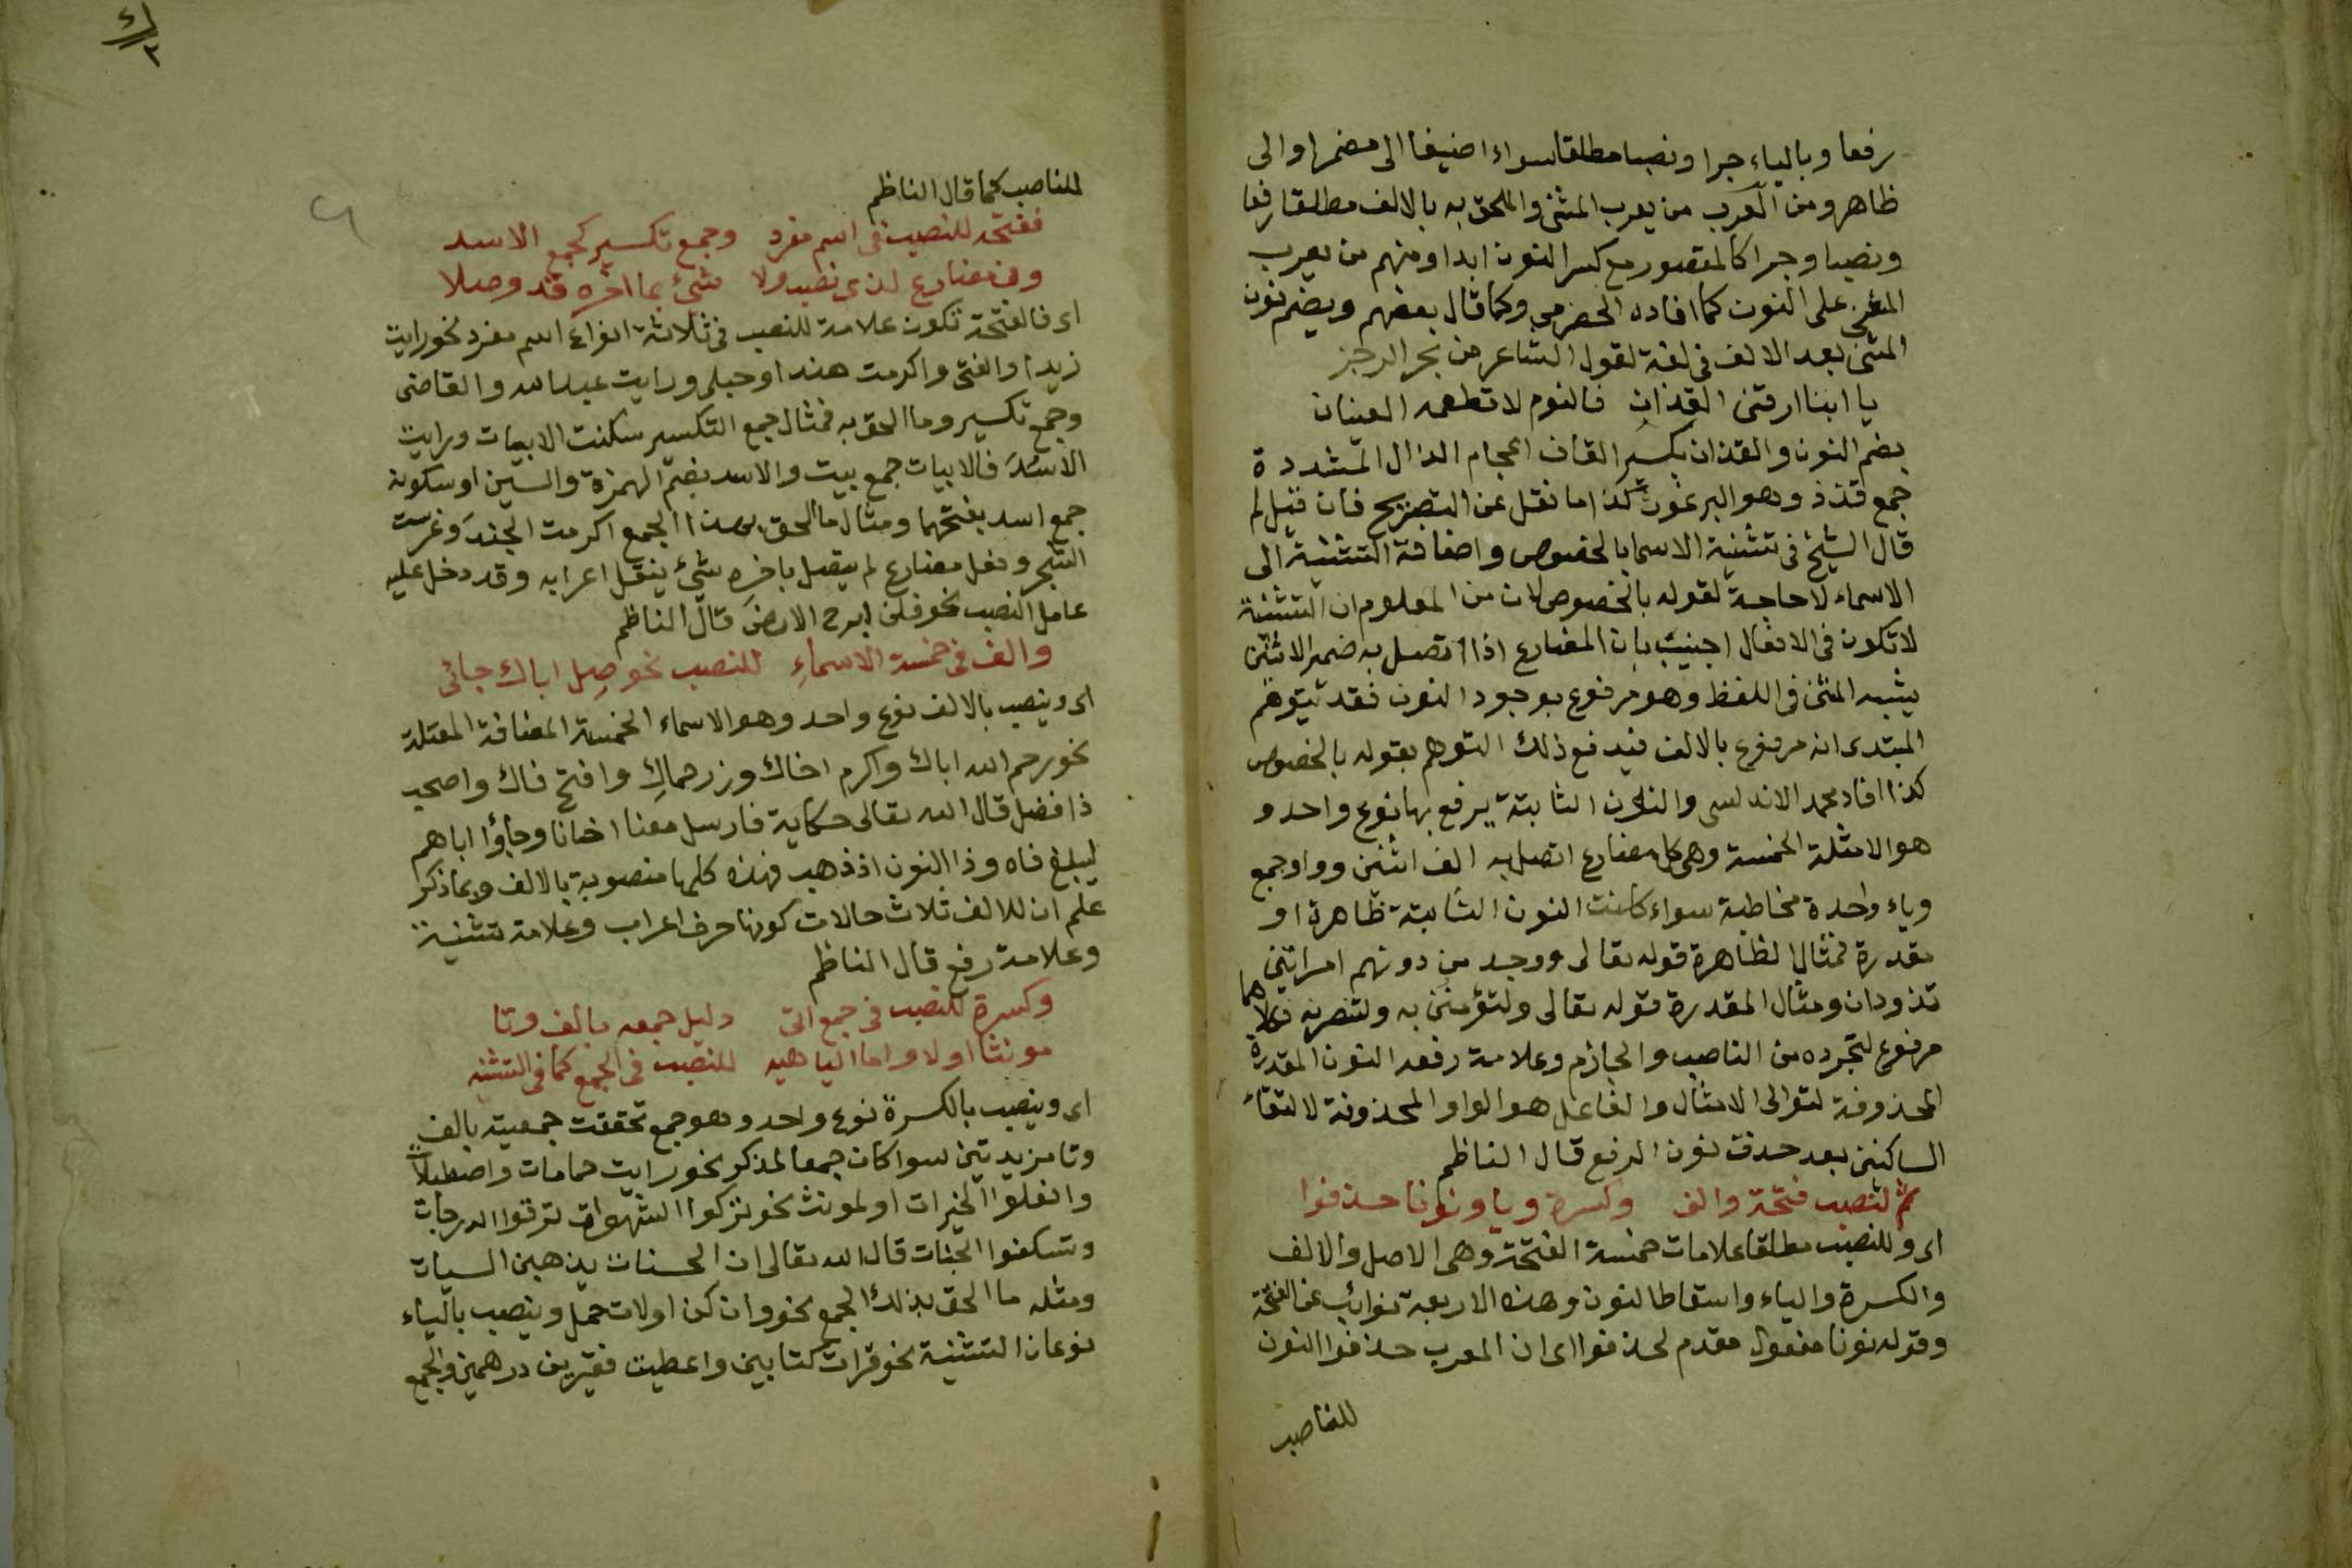 رفعا وبالياء جرا ونصبا مطلقا سواء اضيفا الى مضمر او الى
ظاهر ومن العرب من يعرب المثنى والملحق به بالالف مطلقا رفعا
ونصبا وجرا كالمقصور مع كسر النون ابدا ومنهم من يعرب
المثنى على النون كما افاده الحضرمي وكما قال بعضهم ويضم نون
المثنى بعد الالف في لغة لقول الشاعر من بحر الرجز
يا ابتا ارقني القذان فالنوم لا تطعمه العينان
بضم النون والقذان بكسر القاف اعجام الذال المشددة
جمع قذذ وهو البرغوث كذا ما نقل عن التصريح فان قيل لم
قال الشيخ في تثنية الاسما بالخصوص واضافة التثنية الى
الاسماء لا حاجة لقوله بالخصوص لان من المعلوم ان التثنية
لا تكون في الافعال اجيب بان المضارع اذا اتصل به ضمير الاثنين
يشبه المثنى في اللفظ وهو مرفوع بوجود النون فقد يتوهم
المبتدى انه مرفوع بالالف فيدفع ذلك التوهم بقوله بالخصوص
كذا افاد محمد الاندلسي والنون الثابتة يرفع بها نوع واحد و
هو الامثلة الخمسة وهي كل مضارع اتصل به الف اثنين وواو جمع
وياء واحدة مخاطبة سواء كانت النون الثابتة ظاهرة او
مقدرة فمثال الظاهرة قوله تعالى ووجد من دونهم امراتين
تذودان ومثال المقدرة قوله تعالى ولتؤمنن به ولتنصرنه فكلاهما
مرفوع لتجرده من الناصب والجازم وعلامة رفعه النون المقدرة
المحذوفة لتوالى الامثال والفاعل هو الواو المحذوفة لالتقاء
الساكنين بعد حذف نون الرفع قال الناظم
ثم لنصب فتحة والف وكسرة ويا ونونا حذفوا
اى وللنصب مطلقا علامات خمسة الفتحة وهى الاصل والالف
والكسرة والياء واسقاط النون وهذه الاربعة نوائب عن الفتحة
وقوله نونا مفعول مقدم لحذفوا اى ان المعرب حذفوا النون
للناصب
للناصب كما قال الناظم
ففتحة للنصب في اسم مفرد وجمع تكسير كجمع الاسد
وفى مضارع لذى نصب ولا شئ بما اخره قد وصلا
اى فالفتحة تكون علامة للنصب في ثلاثة انواع اسم مفرد نحو رايت
زيدا والفتى واكرمت هندا وحبلى ورايت عبد الله والقاضى
وجمع تكسير وما الحق به فمثال جمع التكسير سكنت الابيات ورايت
الاسد فالابيات جمع بيت والاسد بضم الهمزة والسين او سكونه
جمع اسد بفتحهما ومثال ما الحق بهذا الجمع اكرمت الجند وغرست
الشجر وفعل مضارع لم يتصل باخره شئ ينقل اعرابه وقد دخل عليه
عامل النصب نحو فلن ابرح الارض قال الناظم
والف في خمسة الاسماء للنصب نحو صل اباك جائى
اى وينصب بالالف نوع واحد وهو الاسماء الخمسة المضافة المعتلة
نحو رحم الله اباك واكرم اخاك وزر حماك وافتح فاك واصحب
ذا فضل قال الله تعالى حكاية فارسل معنا اخانا وجاؤا اباهم
ليبلغ فاه وذا النون اذ ذهب فهذه كلها منصوبة بالالف وبما ذكر
علم ان للالف ثلاث حالات كونها حرف اعراب وعلامة تثنية
وعلامة رفع قال الناظم
وكسرة للنصب في جمع اتى دليل جمعه بالف وتا
مونثا اولا واما الياهيه للنصب في الجمع كما في التثنيه
اى وينصب بالكسرة نوع واحد وهو جمع تحققت جمعيته بالف
وتا مزيدتين سوا كان جمعا لمذكر نحو رايت حمامات واصطبلات
وافعلوا الخيرات او لمونث نحو نزكوا الشهوات لترقوا الدرجات
وتسكنوا الجنات قال الله تعالى ان الحسنات يذهبن السيات
ومثله ما الحق بذلك الجمع نحو وان كن اولات حمل وينصب بالياء
نوعان التثنية نحو قرات كتابين واعطيت فقيرين درهمين والجمع